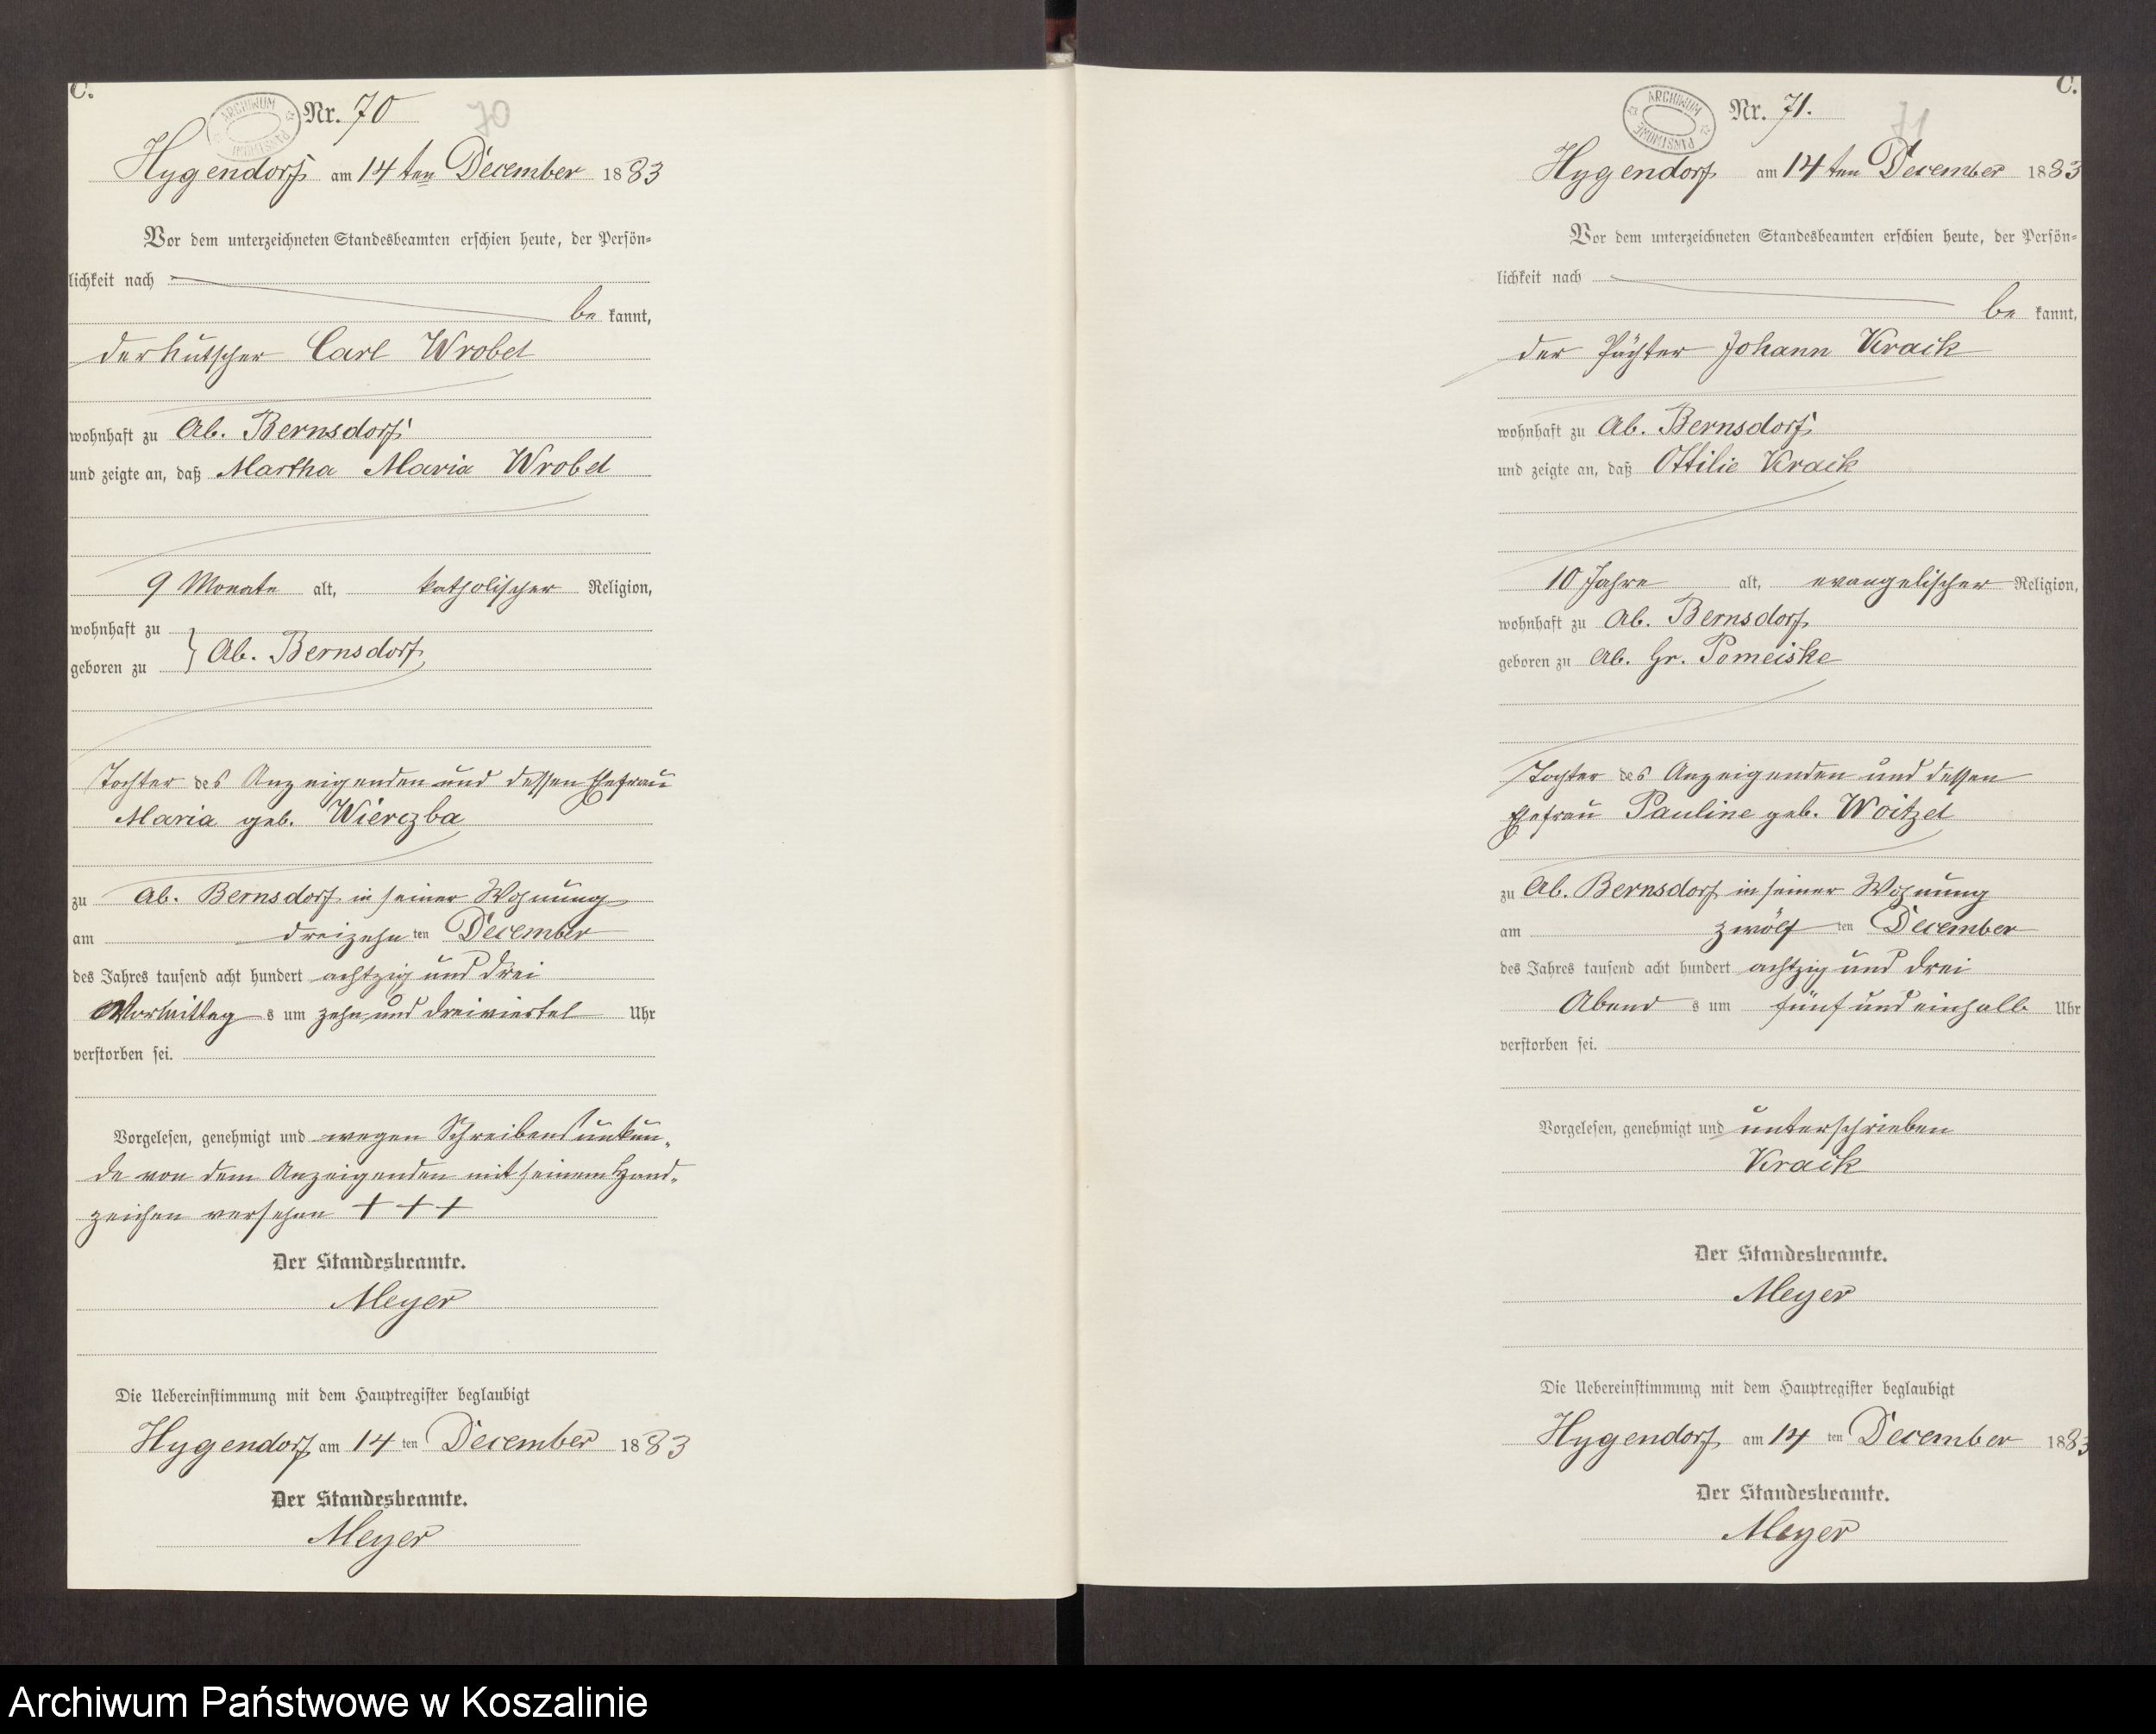 C.
ARCHIWUM PAŃSTWOWE
Nr. 70
70
Hygendorf am 14ten December 1883
Vor dem unterzeichneten Standesbeamten erschien heute, der Persön-
lichkeit nach
be kannt,
der Kutscher Carl Wrobel
wohnhaft zu Ab. Bernsdorf
und zeigte an, daß Martha Maria Wrobel
9 Monate alt, katholischer Religion,
wohnhaft zu
geboren zu } Ab. Bernsdorf
Tochter des Anzeigenden und dessen Ehefrau
Maria geb. Wierczba
zu Ab. Bernsdorf in seiner Wohnung
am dreizehn ten December
des Jahres tausend acht hundert achtzig und drei
Vormittag s um zehn und dreiviertel Uhr
verstorben sei.
Vorgelesen, genehmigt und wegen Schreibensunkun-
de von dem Anzeigenden mit seinem Hand-
zeichen versehen + + +
Der Standesbeamte.
Meyer
Die Uebereinstimmung mit dem Hauptregister beglaubigt
Hygendorf am 14 ten December 1883
Der Standesbeamte.
Meyer
C.
ARCHIWUM PAŃSTWOWE
Nr. 71.
71
Hygendorf am 14ten December 1883
Vor dem unterzeichneten Standesbeamten erschien heute, der Persön-
lichkeit nach
be kannt,
der Pächter Johann Kraik
wohnhaft zu Ab. Bernsdorf
und zeigte an, daß Ottilie Kraik
10 Jahre alt, evangelischer Religion,
wohnhaft zu Ab. Bernsdorf
geboren zu Ab. Gr. Pomeiske
Tochter des Anzeigenden und dessen
Ehefrau Pauline geb. Woitzel
zu Ab. Bernsdorf in seiner Wohnung
am zwölf ten December
des Jahres tausend acht hundert achtzig und drei
Abend s um fünf und einhalb Uhr
verstorben sei.
Vorgelesen, genehmigt und unterschrieben
Kraik
Der Standesbeamte.
Meyer
Die Uebereinstimmung mit dem Hauptregister beglaubigt
Hygendorf am 14 ten December 1883
Der Standesbeamte.
Meyer
Archiwum Państwowe w Koszalinie